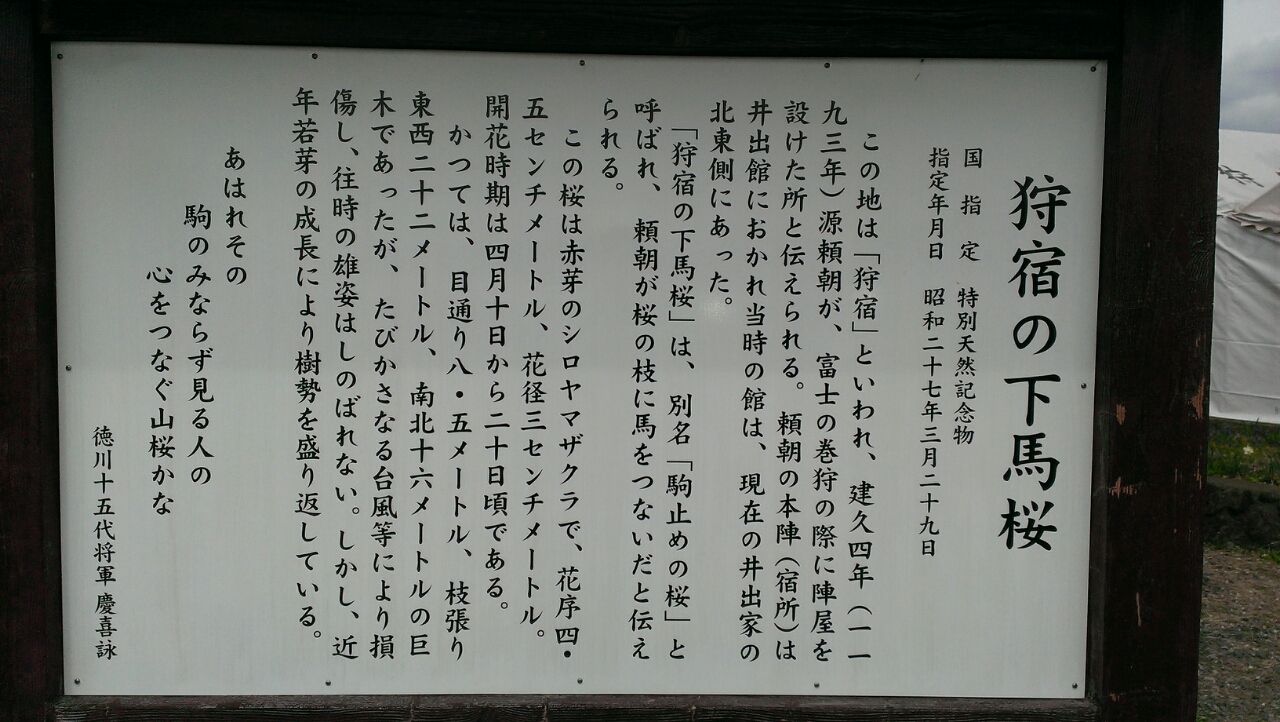 狩宿の下馬桜
国指定 特別天然記念物
指定年月日 昭和二十七年三月二十九日
この地は「狩宿」といわれ、建久四年(一一
九三年)源頼朝が、富士の巻狩の際に陣屋を
設けた所と伝えられる。頼朝の本陣(宿所)は
井出館におかれ当時の館は、現在の井出家の
北東側にあった。
「狩宿の下馬桜」は、別名「駒止めの桜」と
呼ばれ、頼朝が桜の枝に馬をつないだと伝え
られる。
この桜は赤芽のシロヤマザクラで、花序四・
五センチメートル、花径三センチメートル。
開花時期は四月十日から二十日頃である。
かつては、目通り八・五メートル、枝張り
東西二十二メートル、南北十六メートルの巨
木であったが、たびかさなる台風等により損
傷し、往時の雄姿はしのばれない。しかし、近
年若芽の成長により樹勢を盛り返している。
あはれその
駒のみならず見る人の
心をつなぐ山桜かな
徳川十五代将軍慶喜詠